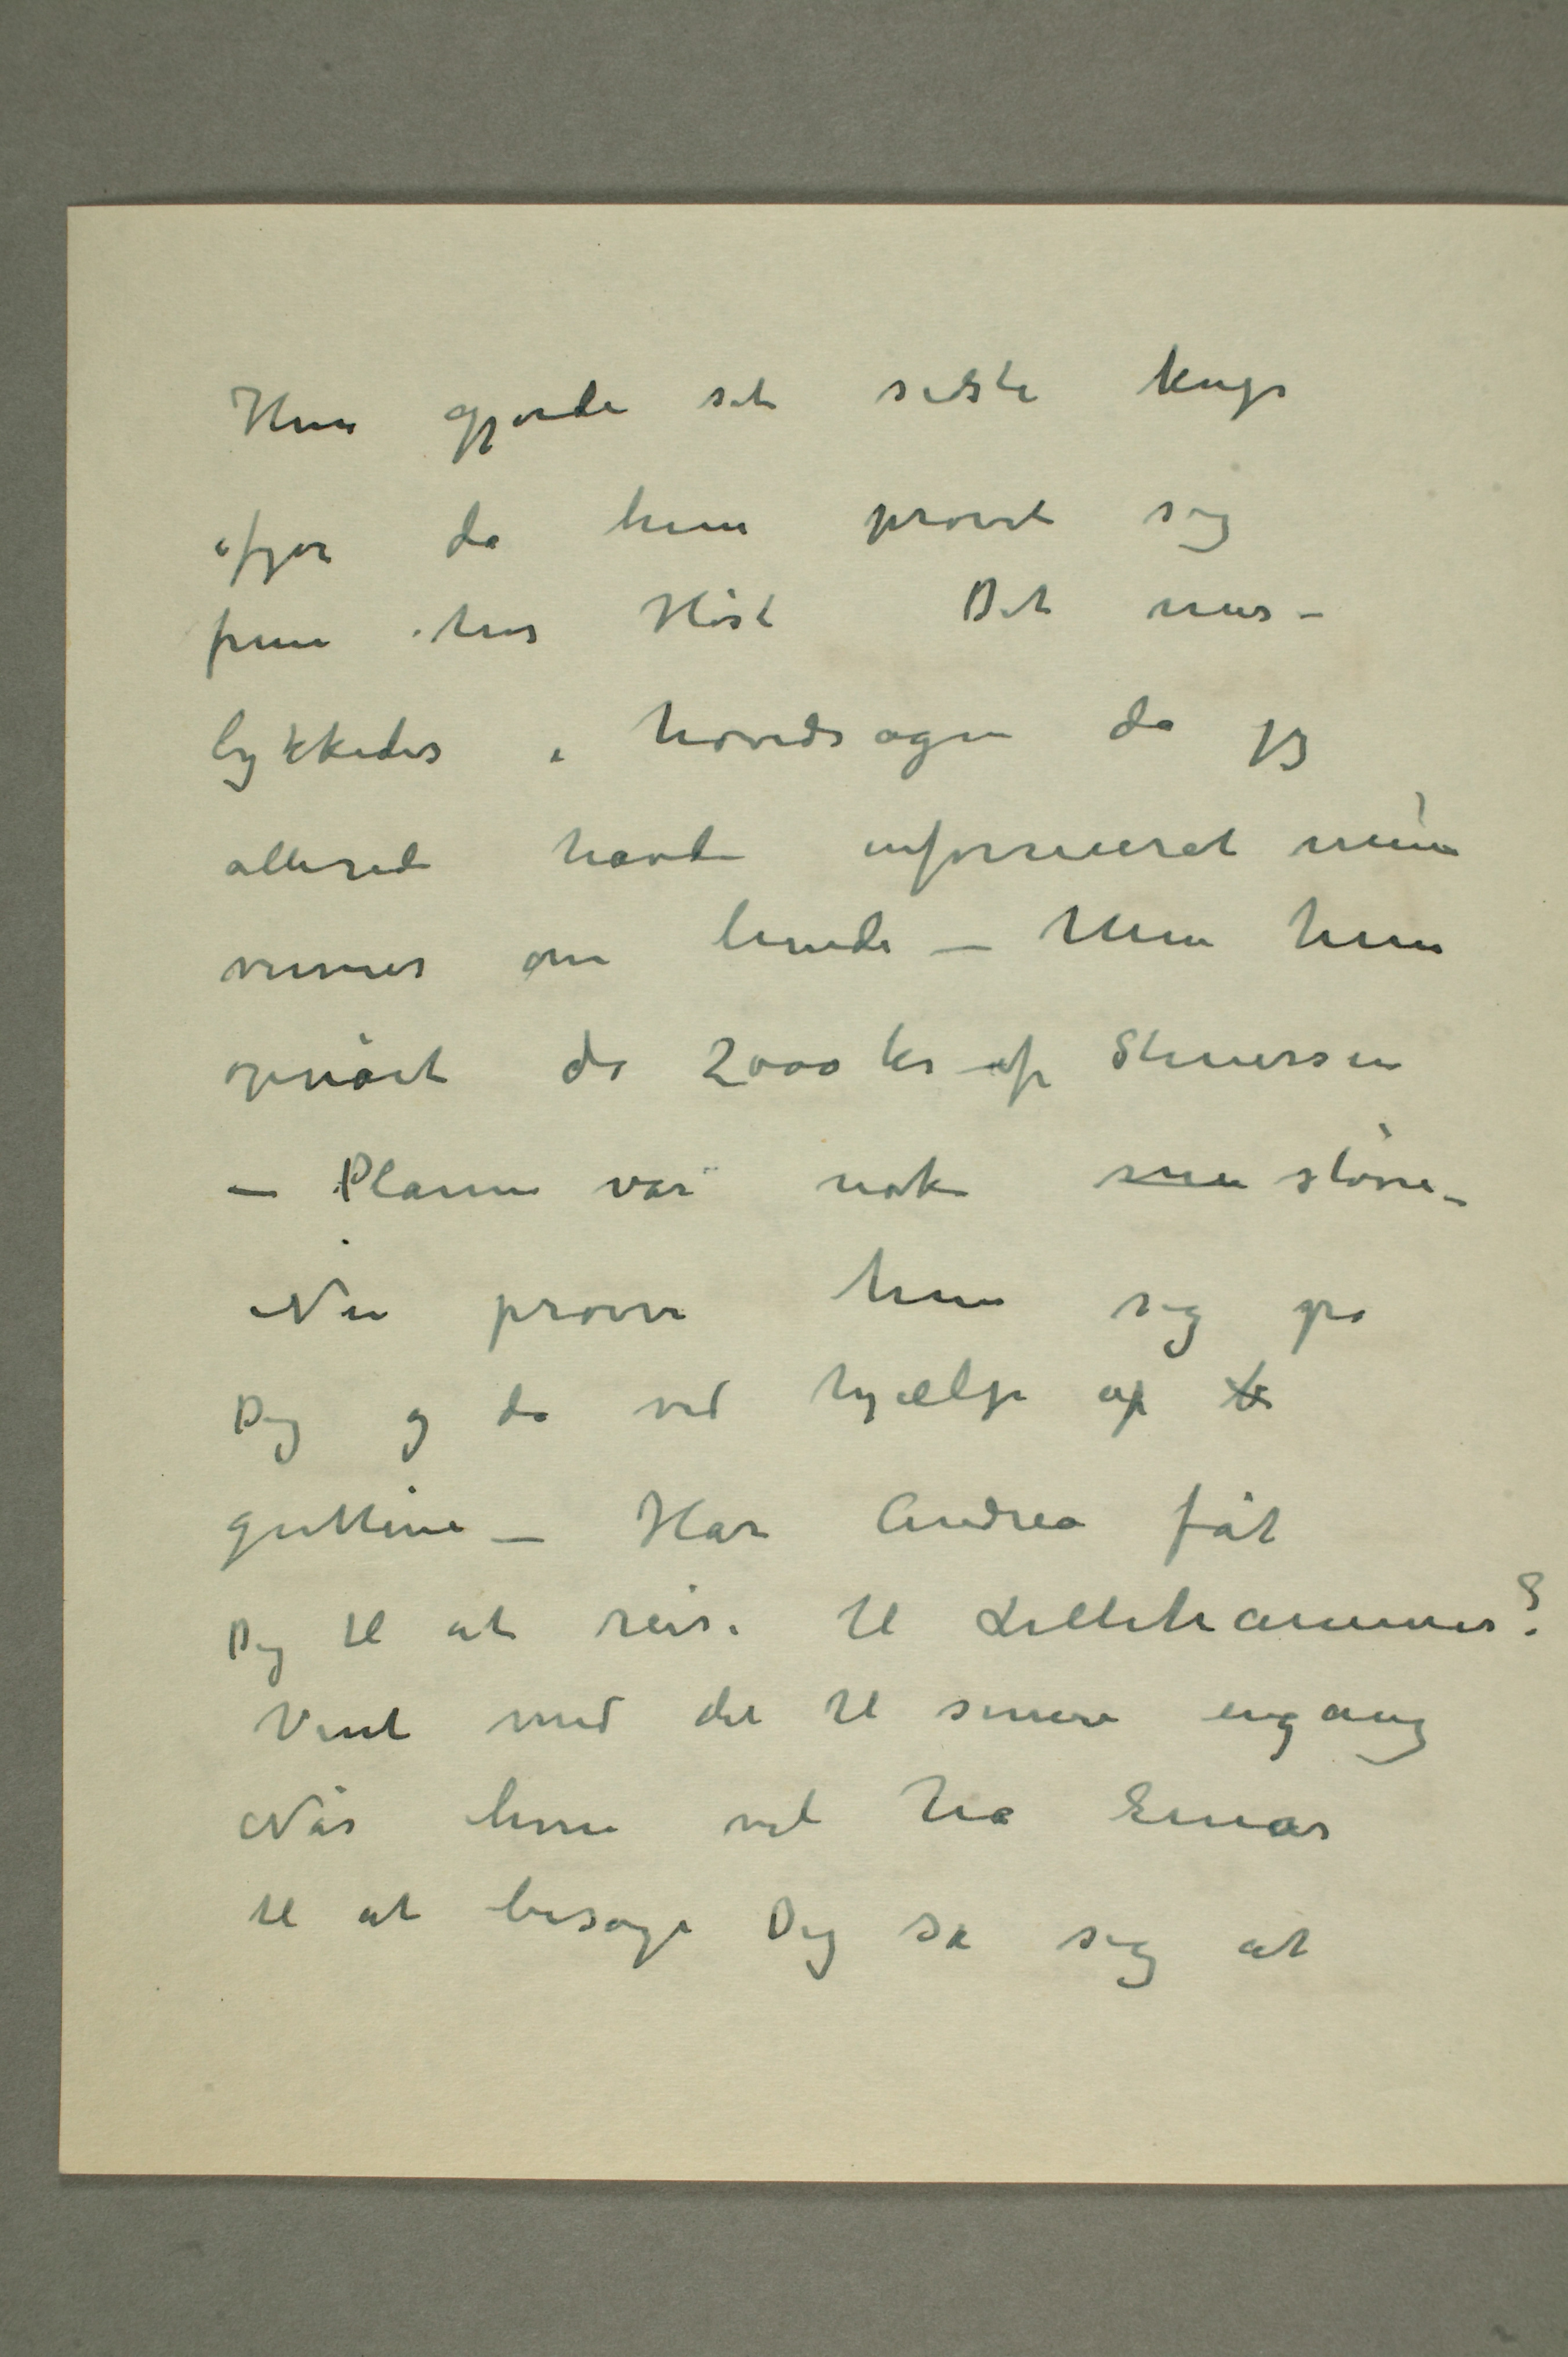 Hun gjorde sit siste kup
ifjor da hun prøvet sig
frem hos Høst Det mis-
lykkedes i hovedsagen da jeg
allerede havde informeret mine
venner om hende – Men hun
opnået da 2000 kr af Stenersen
– Planen var nok større –
Nu prøver hun sig på
Dig og da ved hjælp af
guttene – Har Andrea fåt
Dig til at reise til Lillehammer?
Vent med det til senere engang
Når hun vil ha Einar
til at besøge Dig så sig at